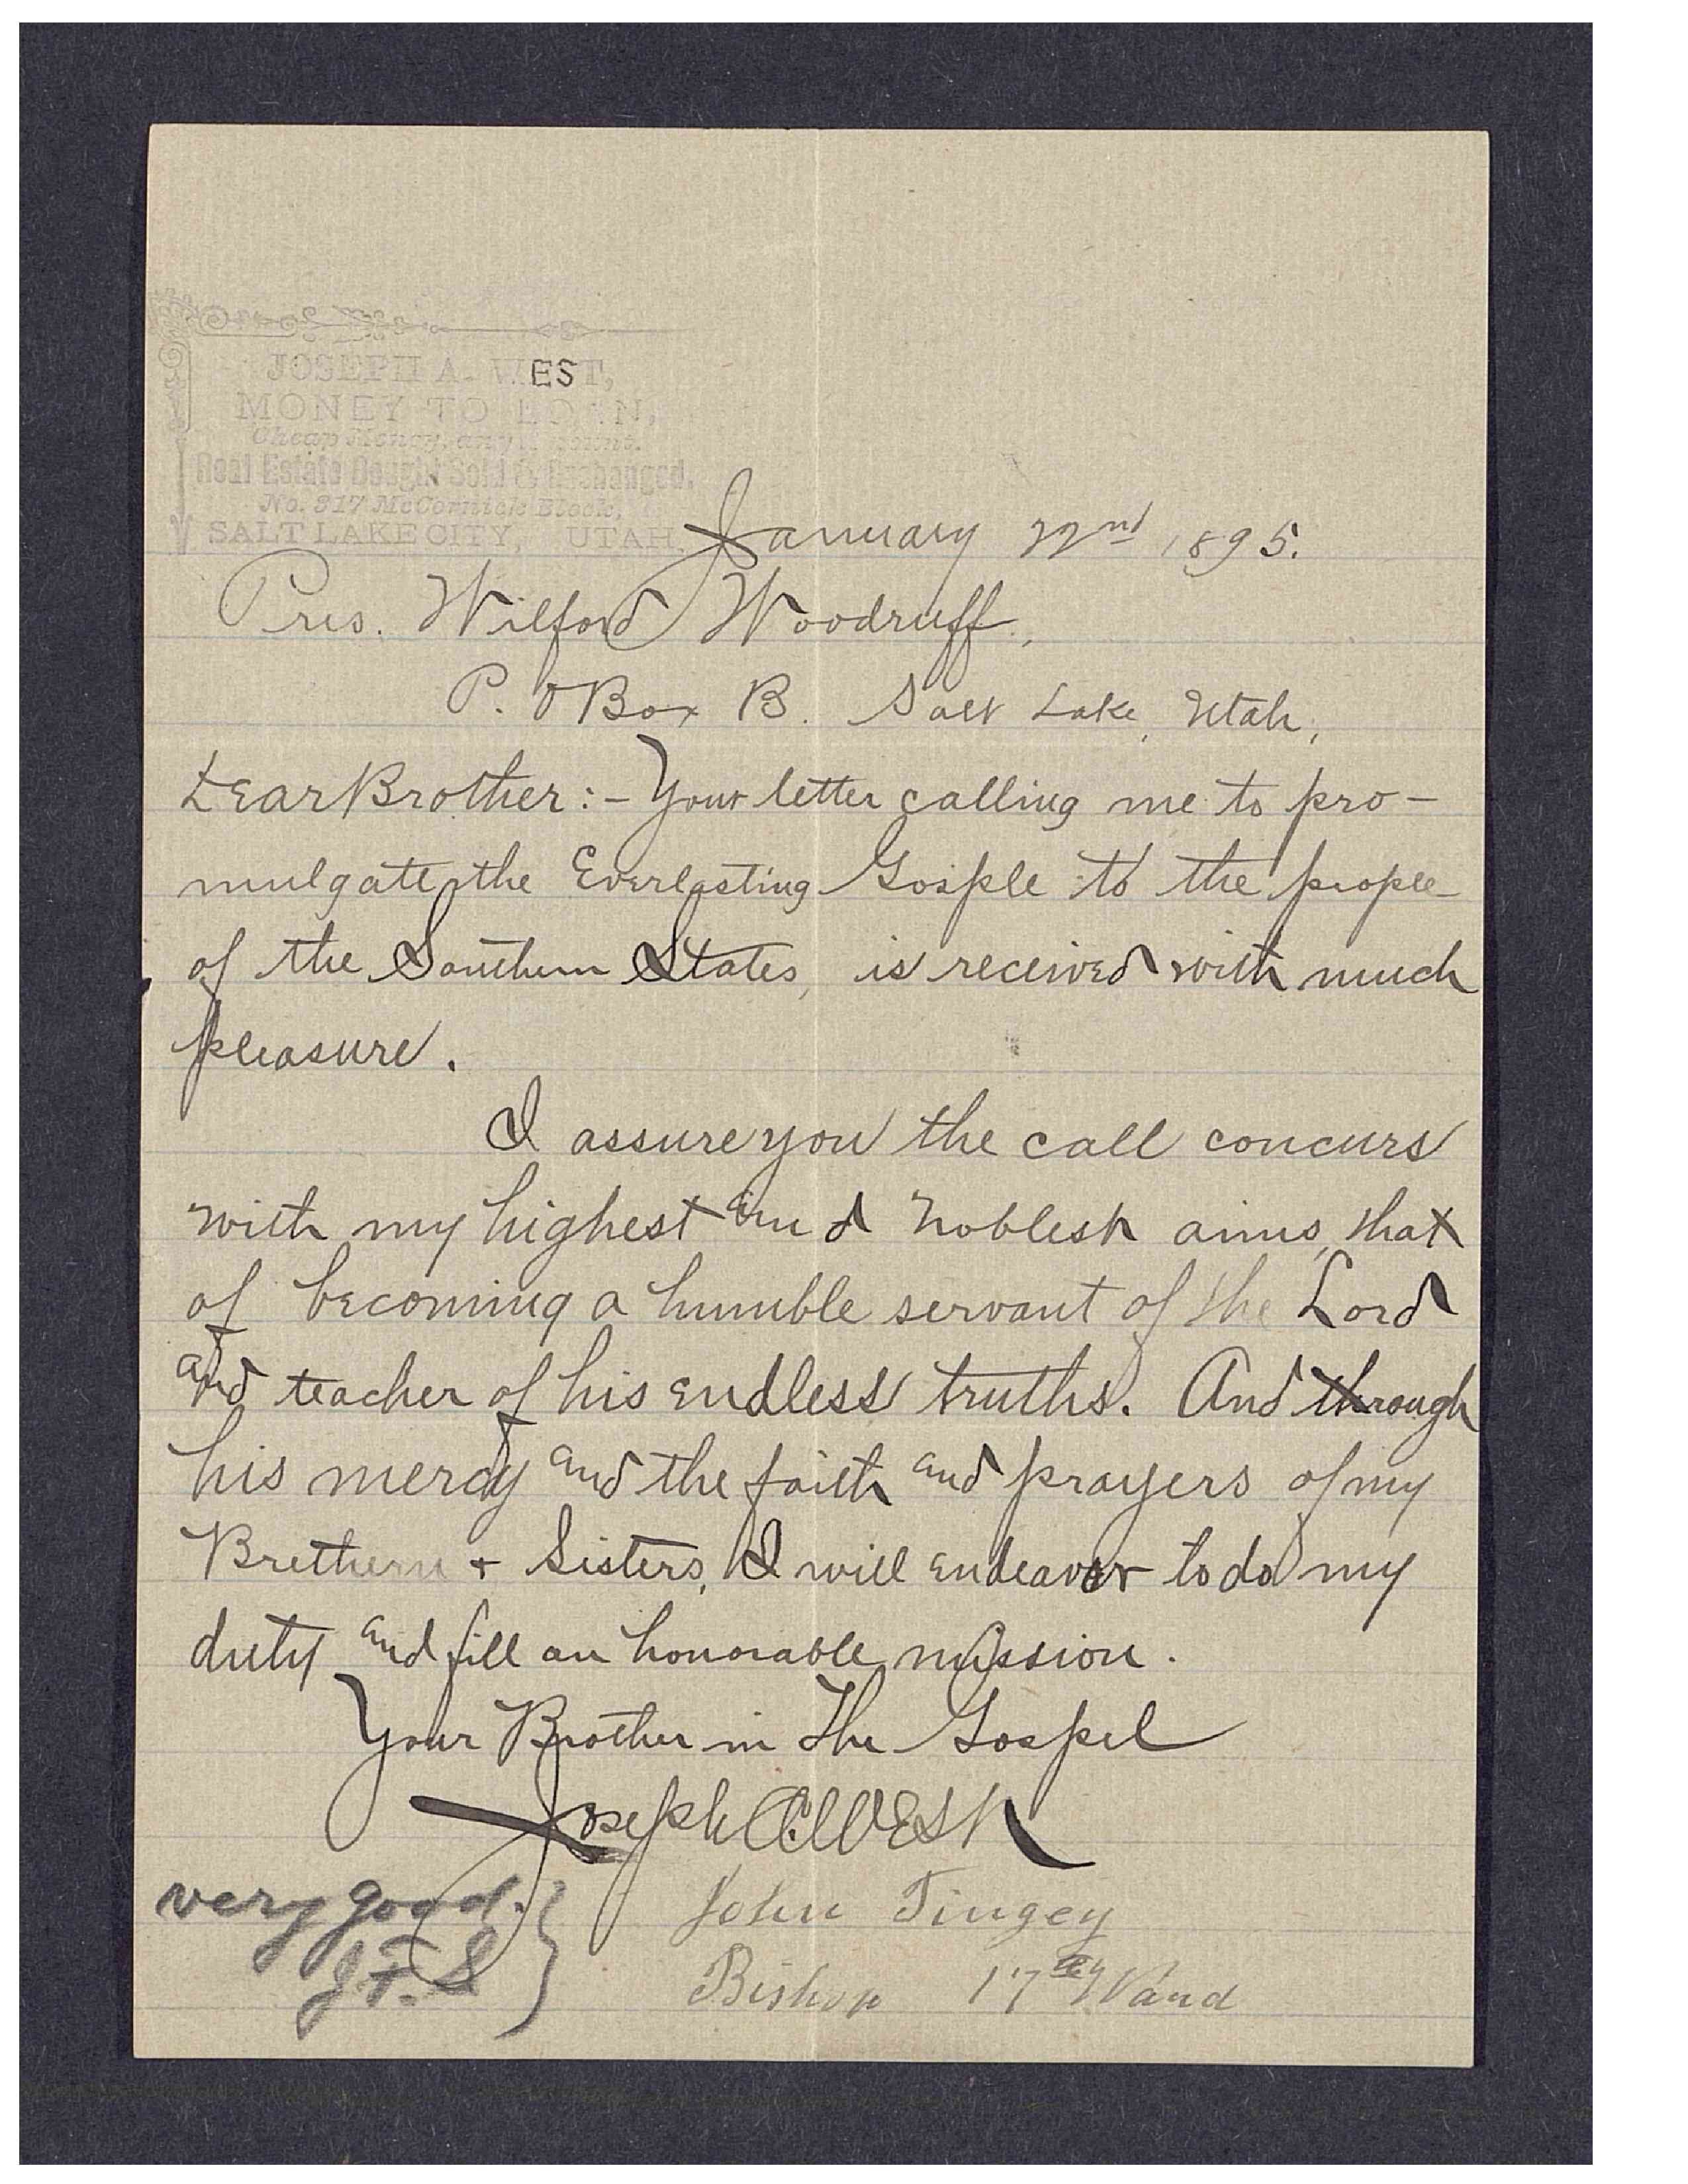 JOSEPH A. WEST,
MONEY TO LOAN,
Cheap Money, any Amount.
Real Estate Bought Sold & Exchanged.
No. 317 McCornick Block,
SALT LAKE CITY, UTAH.
January 22nd 1895.
Pres. Wilford Woodruff,
P. O Box B. Salt Lake, Utah,
Dear Brother:- Your letter calling me to pro-
mulgate the Everlasting Gosple to the people
of the Southern States, is received with much
pleasure.
I assure you the call concurs
with my highest and noblest aims, that
of becoming a humble servant of the Lord
and teacher of his endless truths. And through
his mercy and the faith and prayers of my
Brethern + Sisters, I will endeavor to do my
duty and fill an honorable mission.
Your Brother in The Gospel
Joseph A. West
very good.
J. F. S
John Tingey
Bishop 17th Ward